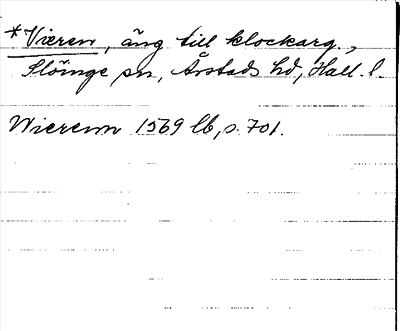 *Vieren, äng till klockarg.,
Slöinge sn, Årstads hd, Hall. l.
Wierenn 1569 lb, s. 701.